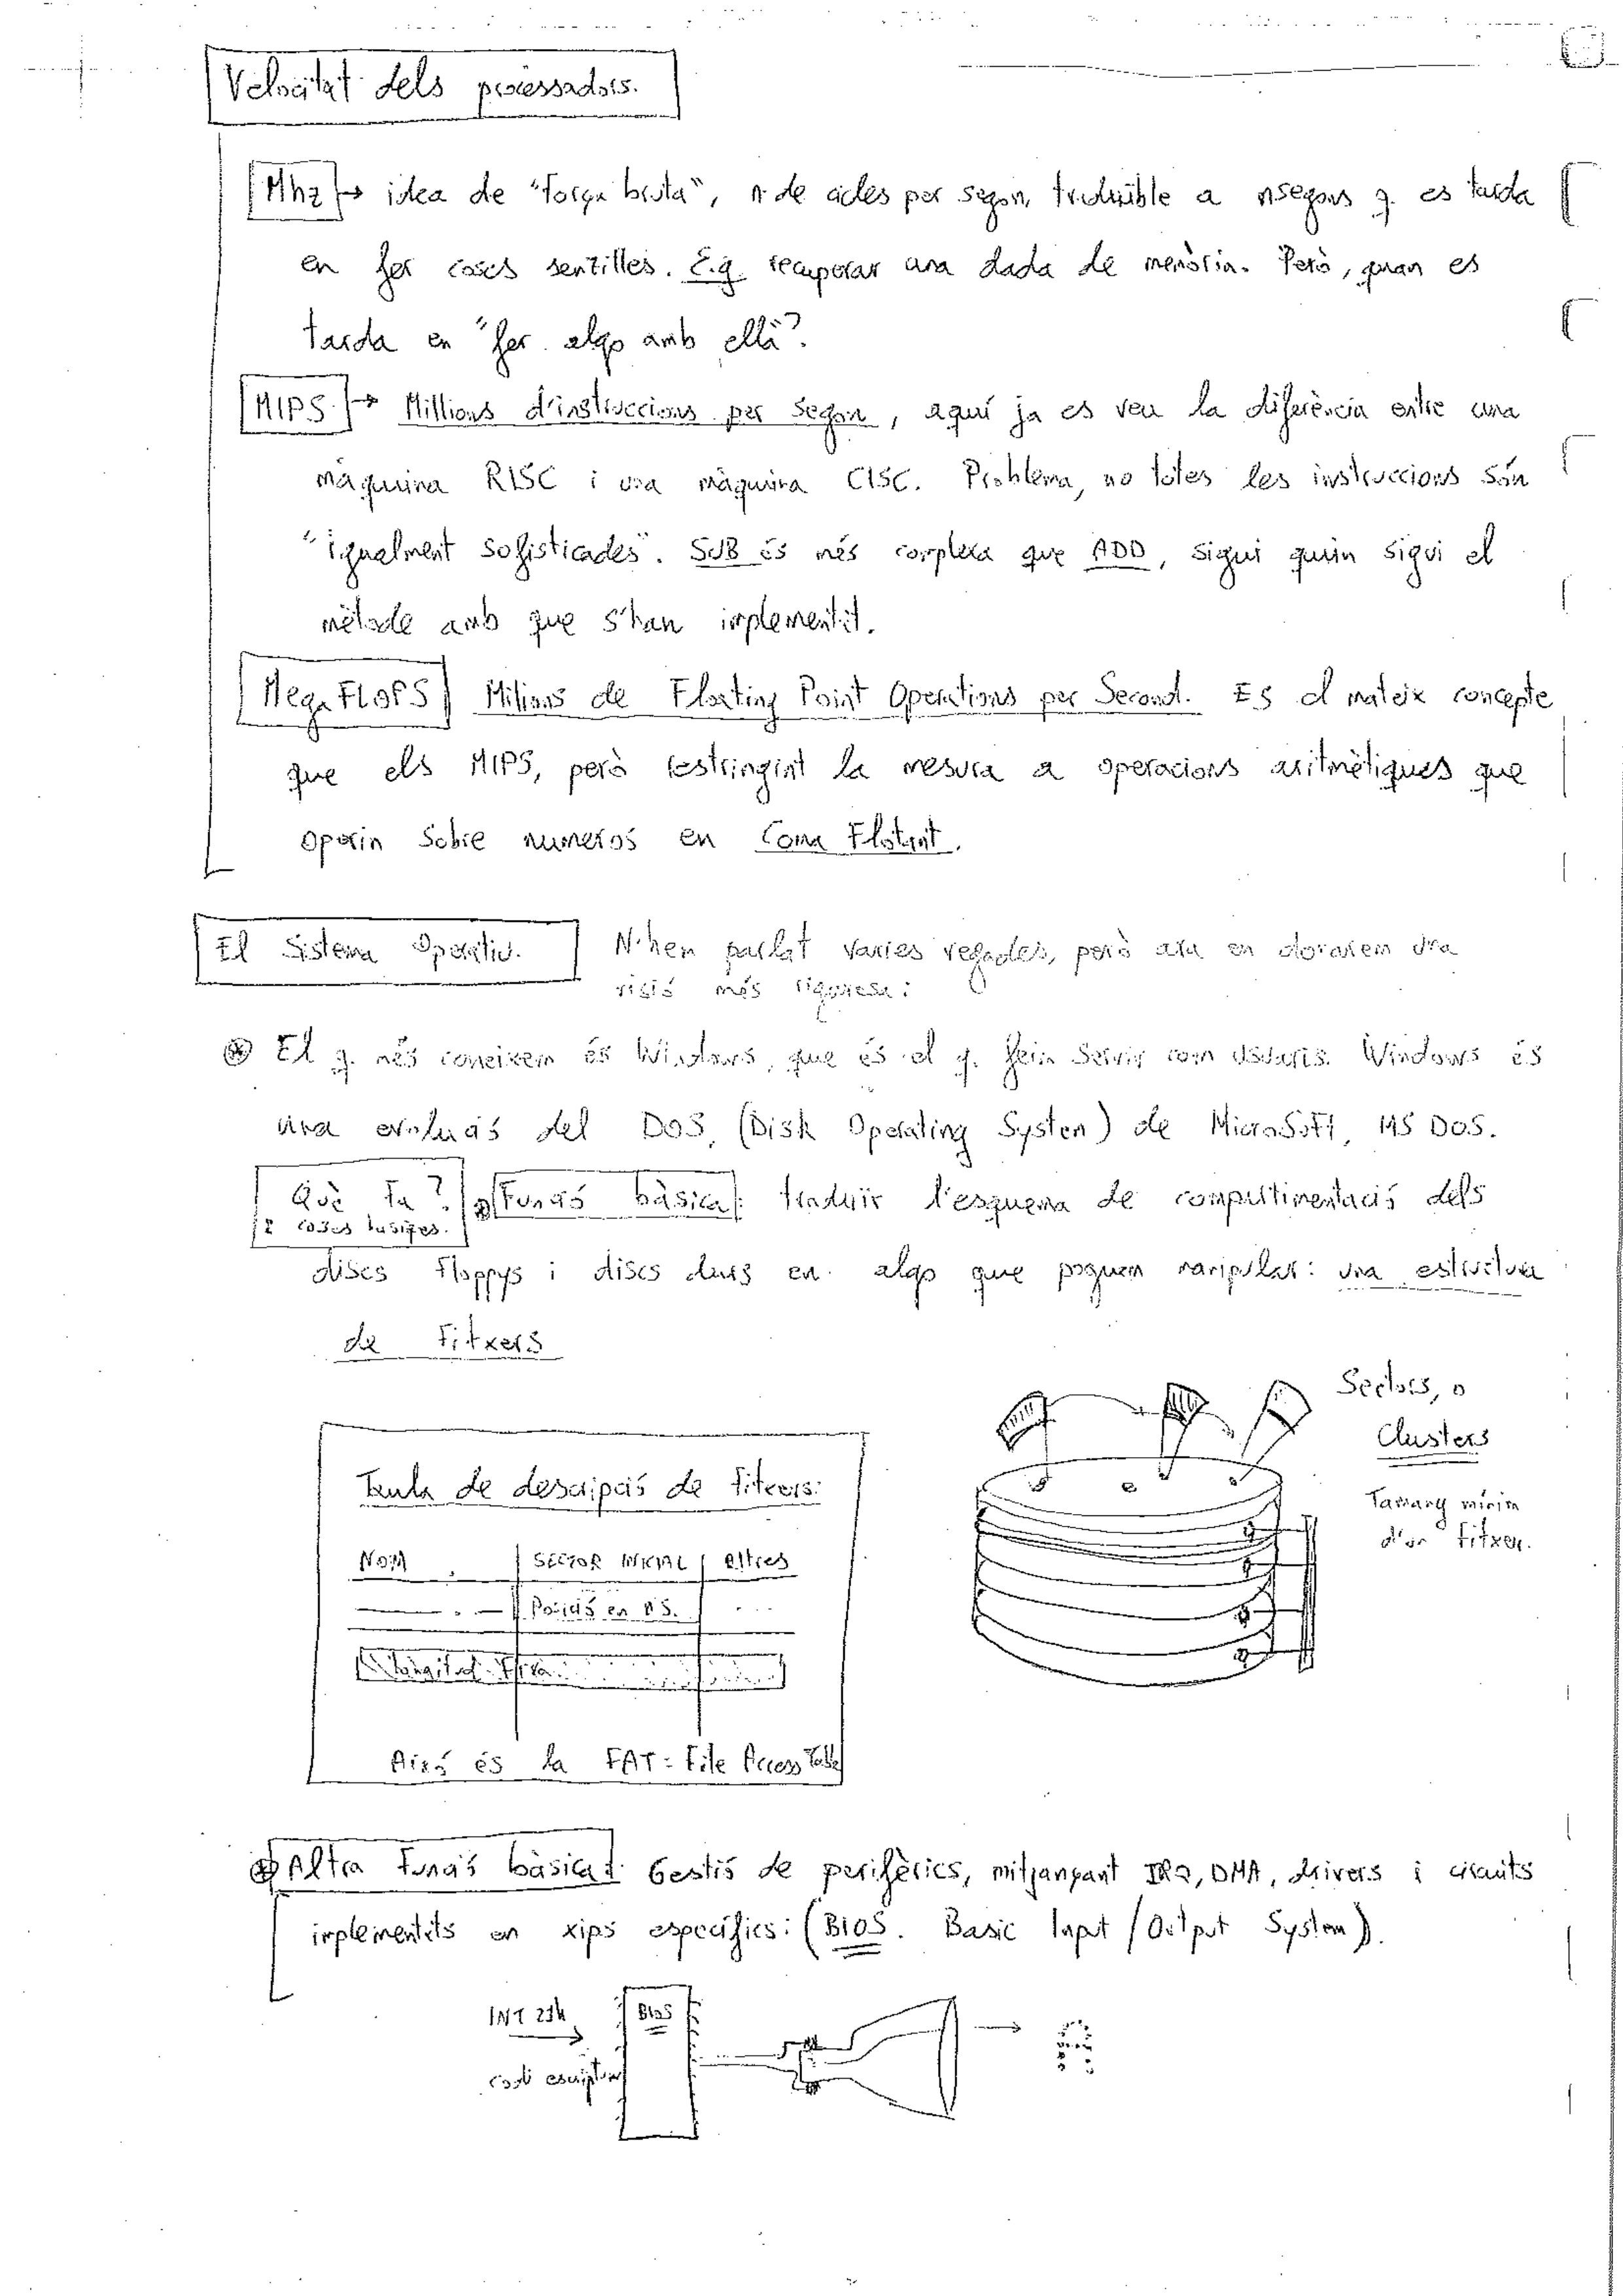 Velocitat dels processadors.
Mhz → idea de "força bruta", nº de cicles per segon, traduïble a nsegons q. es tarda
en fer coses senzilles. E.g. recuperar una dada de memòria. Però, quan es
tarda en "fer algo amb ella"?
MIPS → Millions d'instruccions per segon, aquí ja es veu la diferència entre una
màquina RISC i una màquina CISC. Problema, no totes les instruccions són
"igualment sofisticades". SUB és més complexa que ADD, sigui quin sigui el
mètode amb que s'han implementat.
Mega FLOPS Milions de Floating Point Operations per Second. Es el mateix concepte
que els MIPS, però restringint la mesura a operacions aritmètiques que
operin sobre numeros en Coma Flotant.
El Sistema Operatiu.
N'hem parlat varies vegades, però ara en donarem una
visió més rigorosa:
El q. més coneixem és Windows, que és el q. fem servir com usuaris. Windows és
una evolució del DOS, (Disk Operating System) de MicroSoft, MS DOS.
Què fa? Funció bàsica: traduir l'esquema de compartimentació dels
2 coses bàsiques.
discs Floppys i discs durs en algo que poguem manipular: una estructura
de Fitxers
Sectors, o
Clusters
Tamany mínim
d'un Fitxer.
Taula de descripció de fitxers:
NOM SECTOR INICIAL altres
Posició en DS. ...
Això és la FAT = File Access Table
Altra Funció bàsica: Gestió de perifèrics, mitjançant IRQ, DMA, drivers i circuits
implementats en xips específics: (BIOS. Basic Input / Output System).
INT 21h
BIOS
codi escriptura